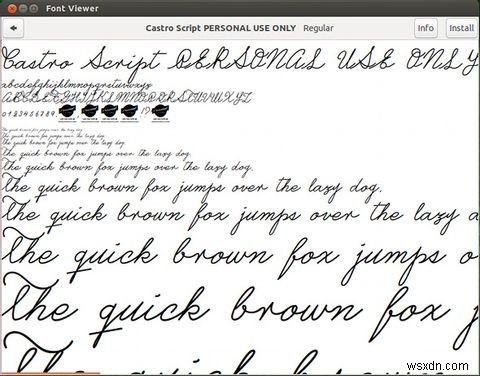 Font Viewer
Castro Script PERSONAL USE ONLY Regular
Info
Install
Castro Script PERSONAL USE ONLY
abcdefghijklmnopqrstuvwxyz
ABCDEFGHIJKLMNOPQRSTUVWXYZ
0123456789
!?
The quick brown fox jumps over the lazy dog.
The quick brown fox jumps over the lazy dog.
The quick brown fox jumps over the lazy dog.
The quick brown fox jumps over the lazy dog.
The quick brown fox jumps over the lazy dog.
The quick brown fox jumps over the lazy dog.
The quick brown fox jumps over the lazy d
The quick brown fox jumps o
The quick brown fox j
wsxdn.com